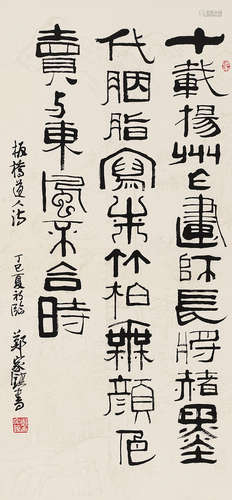 十載揚州乍畫師長將赭墨
代胭脂寫來竹柏無顏色
賣与東風不合時
板橋道人詩
丁巳夏 鄭家鎮書